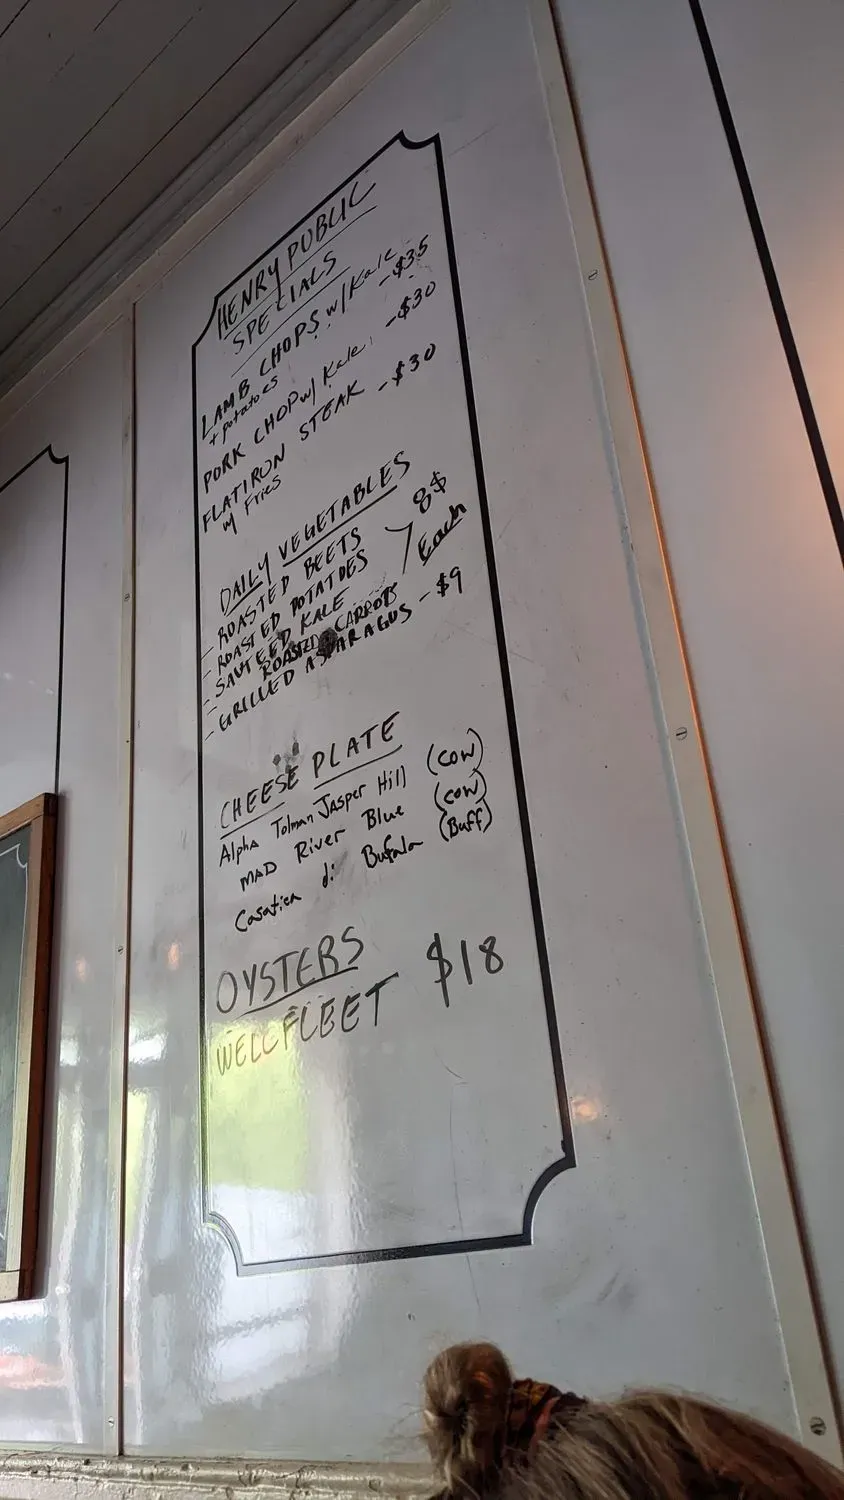 HENRY PUBLIC
SPECIALS
LAMB CHOPS w/Kale -$35
+ potatoes
PORK CHOP w/ Kale -$30
FLATIRON STEAK -$30
w/ Fries
DAILY VEGETABLES
- ROASTED BEETS
- ROASTED POTATOES 8$ Each
- SAUTEED KALE
- ROASTED CARROTS
- GRILLED ASPARAGUS - $9
CHEESE PLATE
Alpha Tolman Jasper Hill (COW)
MAD River Blue (COW)
Casatica di Bufala (Buff)
OYSTERS
WELLFLEET $18